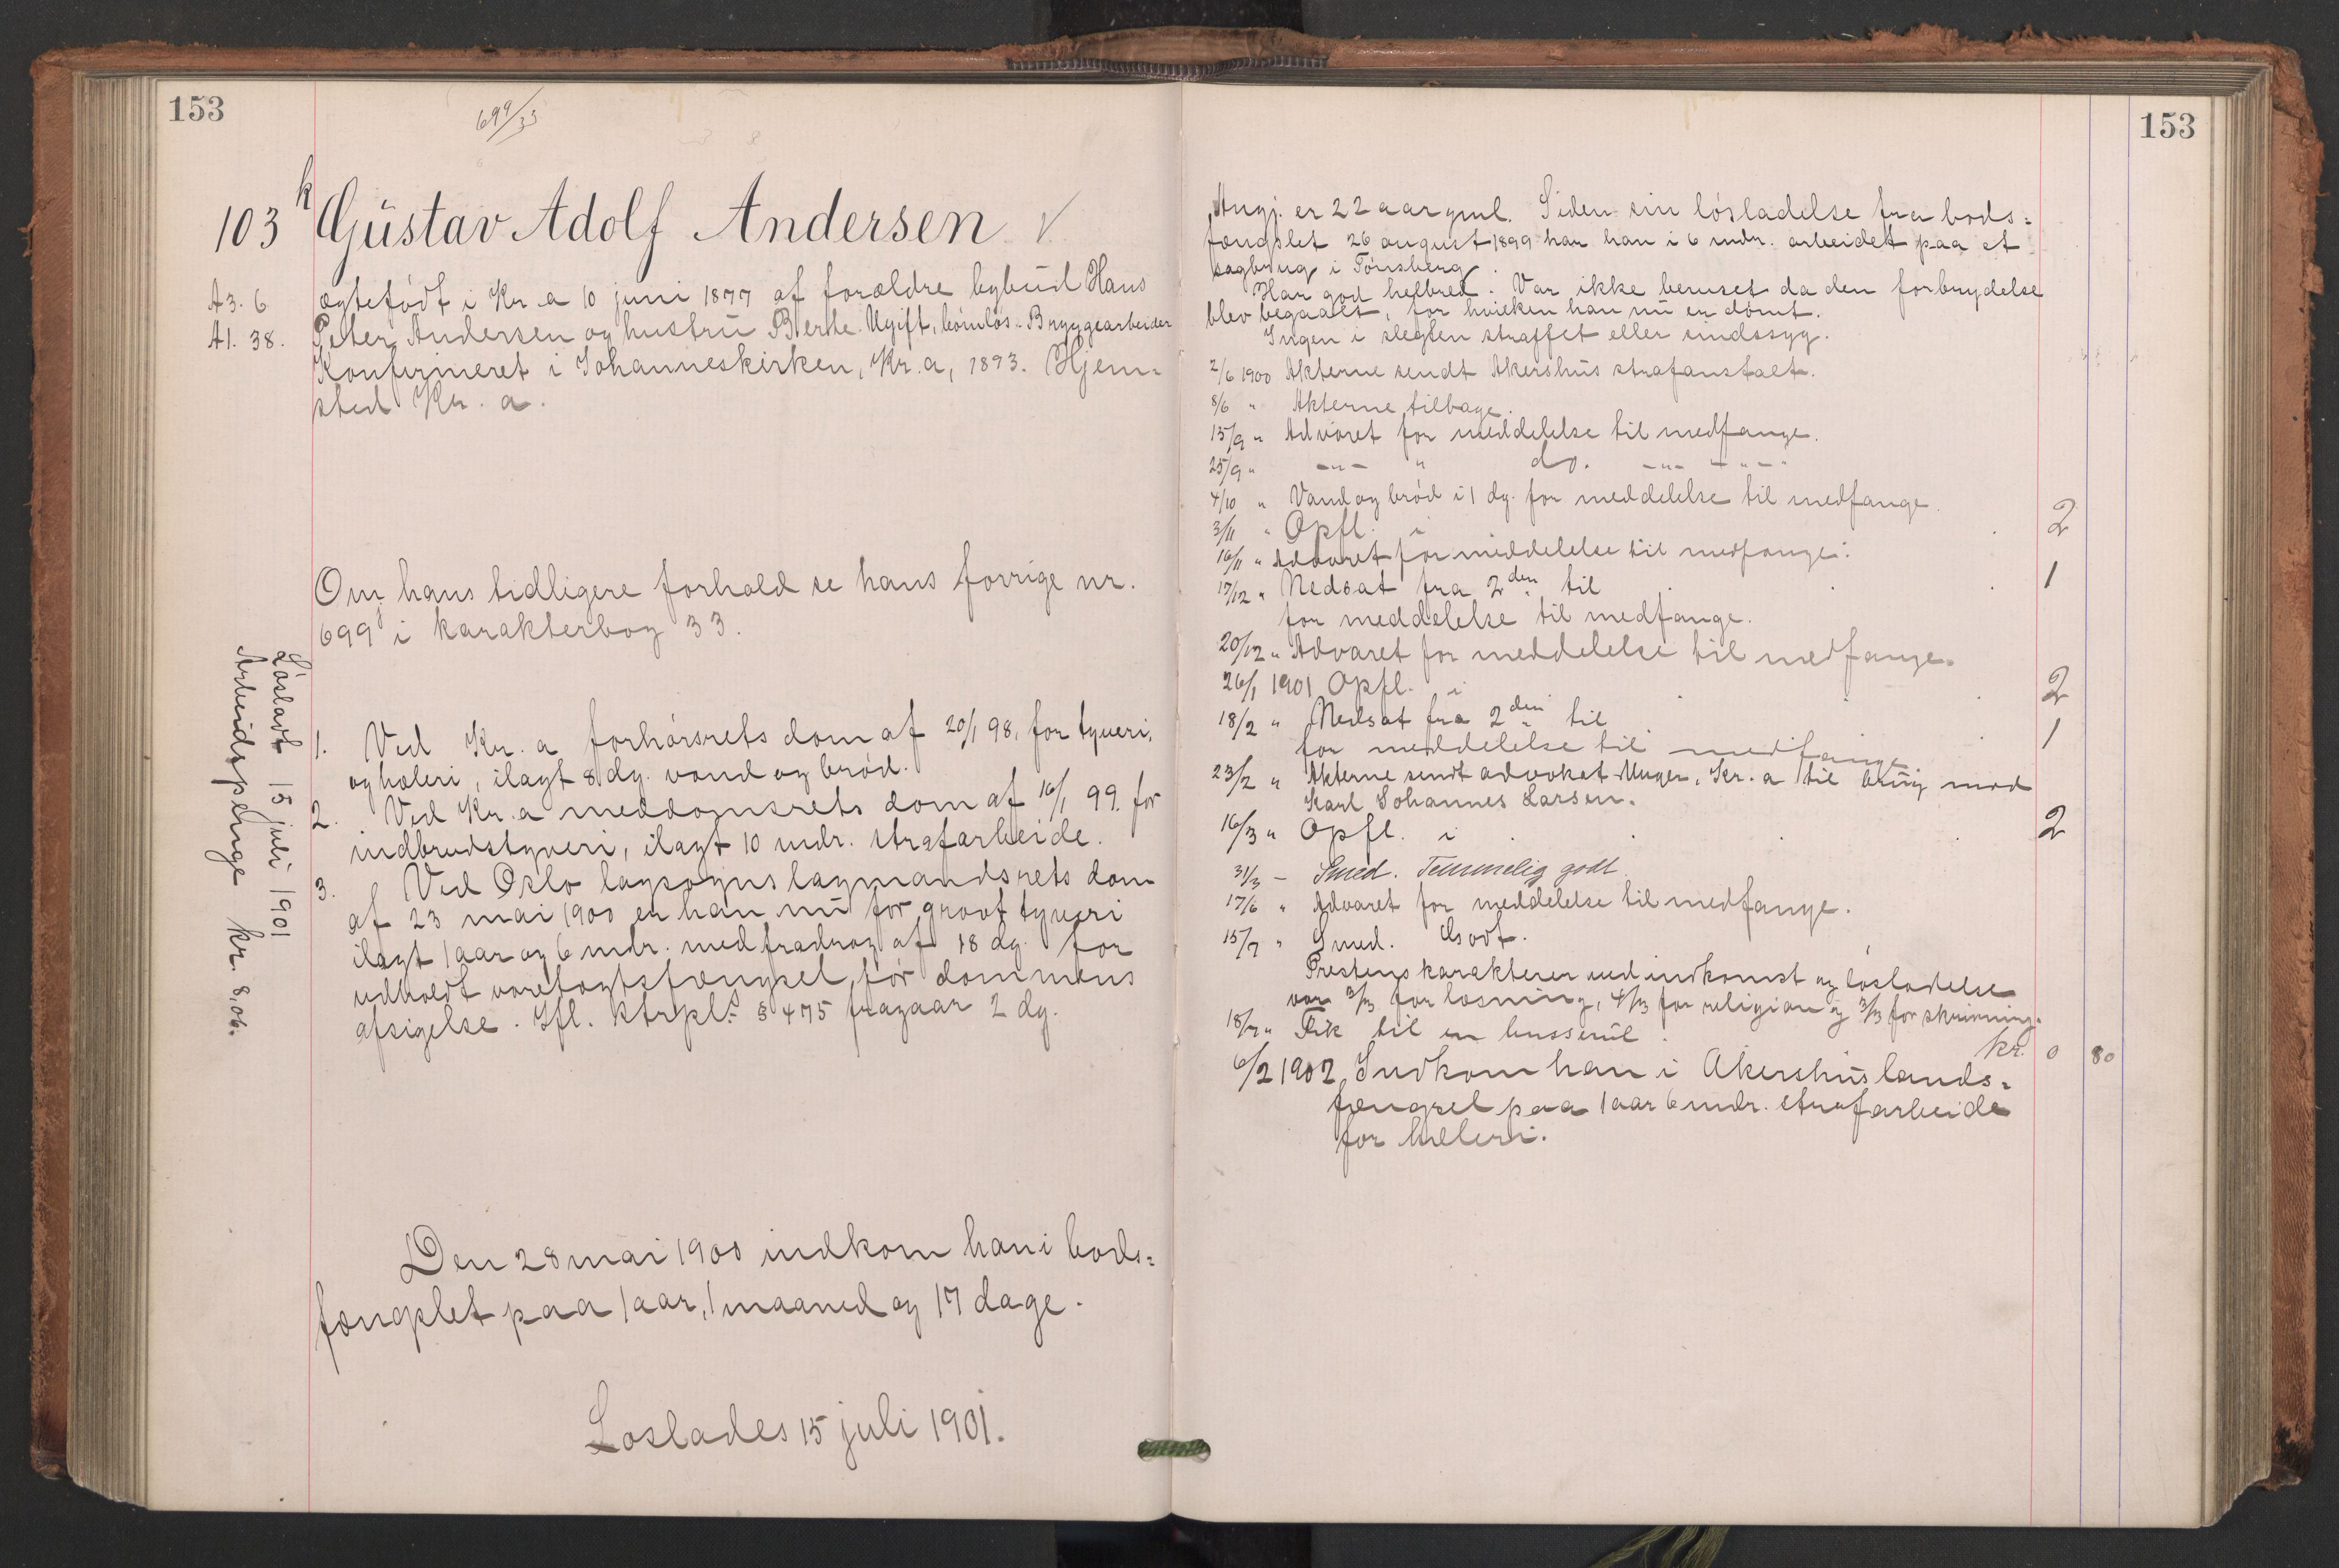 153
699/33
103 k Gustav Adolf Andersen
A3. 6. ægtefødt i Kr.a 10 juni 1877 af forældre bybud Hans
A1. 38. Peter Andersen og hustru Berte. Ugift, børnløs. Bryggearbeider
Konfirmeret i Johanneskirken, Kr.a, 1893. Hjem-
sted Kr.a.
Om hans tidligere forhold se hans forrige nr.
699 i karakterbog 33.
1. Ved Kr.a forhørsrets dom af 20/1 98, for tyveri,
og hæleri, ilagt 8 dg. vand og brød.
2. Ved Kr.a meddomsrets dom af 16/1 99. for
indbrudstyveri, ilagt 10 mdr. strafarbeide.
3. Ved Oslo lagsogns lagmandsrets dom
af 23 mai 1900 er han nu for grovt tyveri
ilagt 1 aar og 6 mdr. med fradrag af 18 dg. for
udholdt varetægtsfængsel før dommens
afsigelse. Ifl. ktrpl. § 475 fragaar 2 dg.
Løsladt 15 juli 1901
Arbeidspenge kr. 8,06.
Den 28 mai 1900 indkom han i bods=
fængslet paa 1 aar, 1 maaned og 17 dage.
Løslades 15 juli 1901.
153
Angj. er 22 aar gml. Siden sin løsladelse fra bods=
fængslet 26 august 1899 har han i 6 mdr. arbeidet paa et
sagbrug i Tønsberg.
Har god helbred. Var ikke beruset da den forbrydelse
blev begaaet, for hvilken han nu er dømt.
Ingen i slegten straffet eller sindssyg.
2/6 1900 Akterne sendt Akershus strafanstalt.
8/6 " Akterne tilbage.
15/9 " Advaret for meddelelse til medfange.
25/9 " -"- " do. -"- -"-
4/10 " Vand og brød i 1 dg. for meddelelse til medfange.
3/11 " Opfl. i 2
16/11 " Advaret for meddelelse til medfange.
17/12 " Nedsat fra 2den til 1
for meddelelse til medfange.
20/12 " Advaret for meddelelse til medfange.
26/1 1901 Opfl. i 2
18/2 " Nedsat fra 2den til 1
for meddelelse til medfange.
23/2 " Akterne sendt advokat Kr.a til brug mod
Karl Johannes Larsen.
16/3 " Opfl. i 2
31/3 - Smed. Temmelig godt.
17/6 " Advaret for meddelelse til medfange.
15/7 " Smed. Godt.
Prestens karakterer ved indkomst og løsladelse
var 3/3 for læsning, 4/3 for religion og 3/3 for skrivning.
18/7 " Fik til en busserul kr. 0 80
6/2 1902 Indkom han i Akershus lands=
fængsel paa 1 aar 6 mdr. strafarbeide
for hæleri.